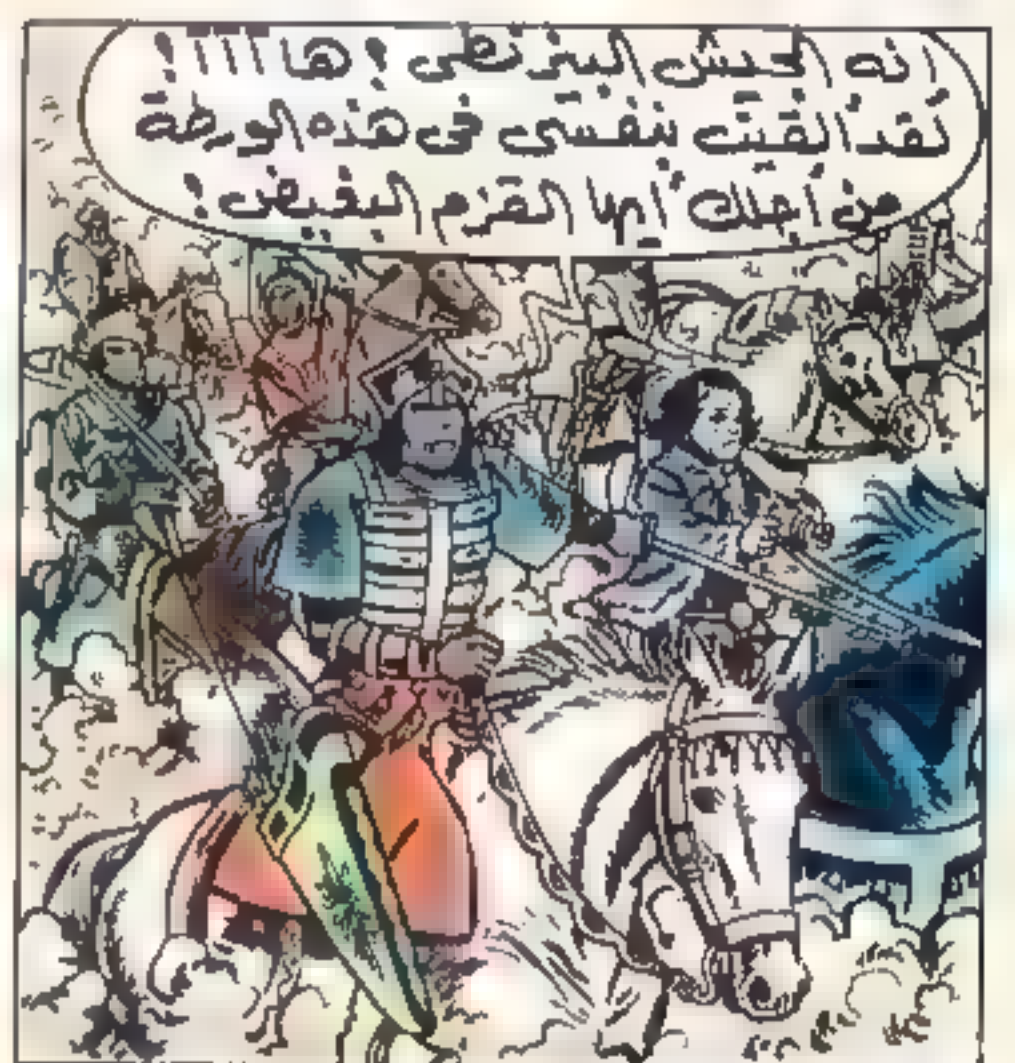 انه الجيش البيزنطى ! ها ا ا ا !
لقد ألقيت بنفسى فى هذه الورطة
من أجلك أيها القزم البغيض !